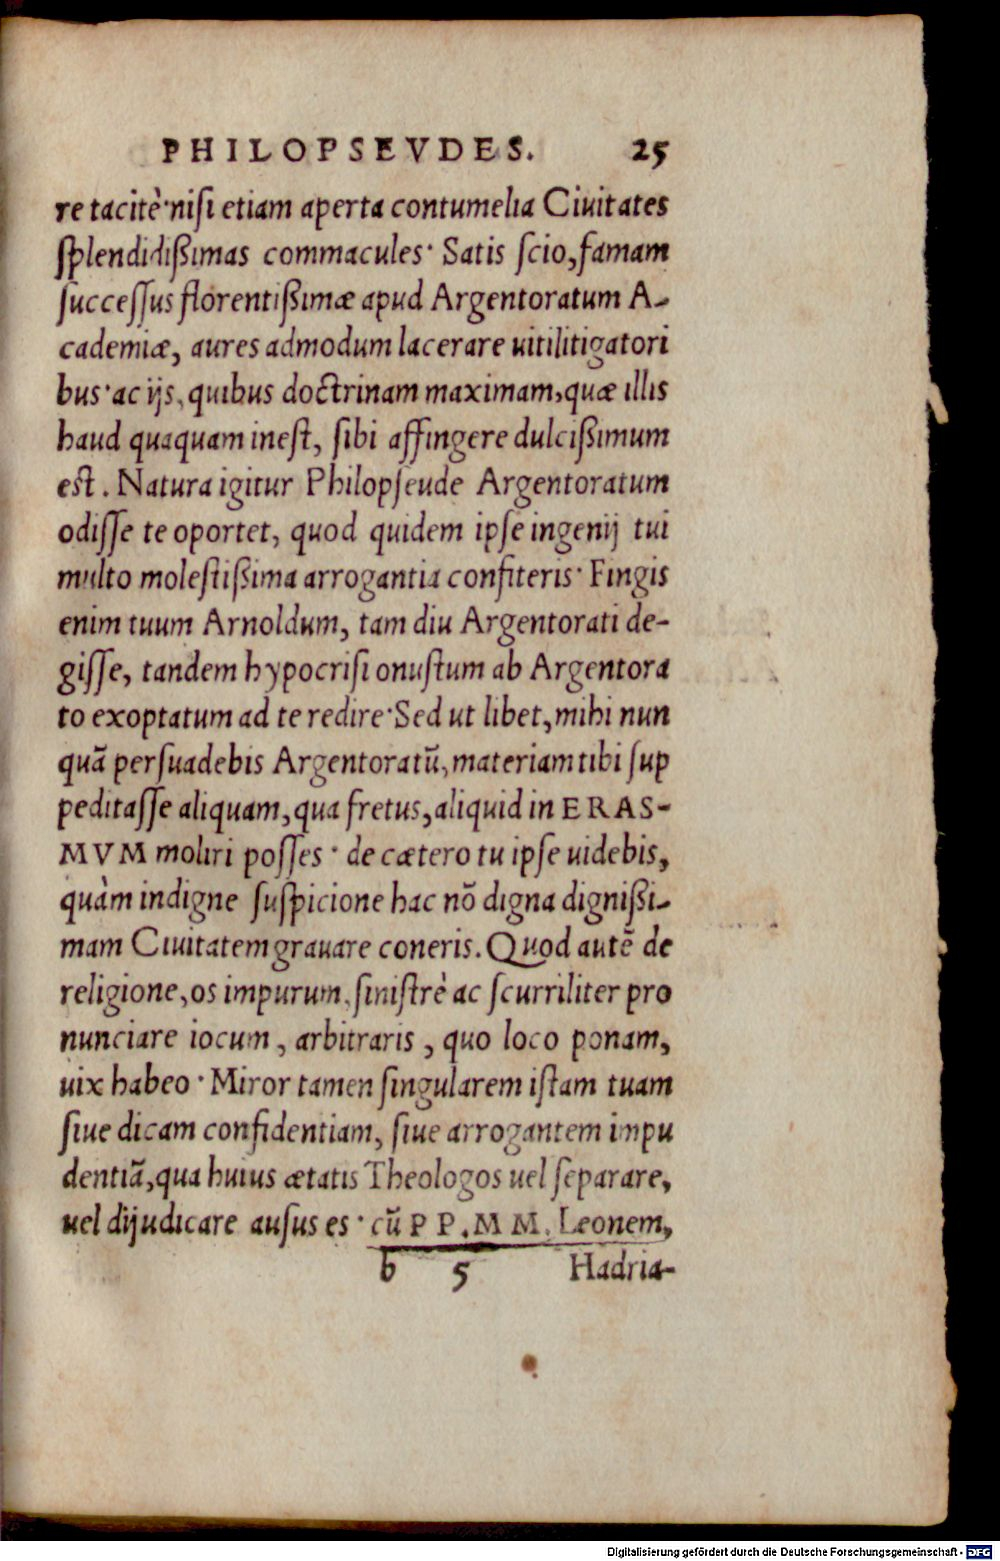 PHILOPSEVDES. 25
re tacitè·niſi etiam aperta contumelia Ciuitates
ſplendidißimas commacules· Satis ſcio, famam
ſucceſſus florentißimæ apud Argentoratum A-
cademiæ, aures admodum lacerare uitilitigatori
bus·ac ijs, quibus doctrinam maximam, quæ illis
haud quaquam ineſt, ſibi affingere dulcißimum
eſt. Natura igitur Philopſeude Argentoratum
odiſſe te oportet, quod quidem ipſe ingenij tui
multo moleſtißima arrogantia confiteris· Fingis
enim tuum Arnoldum, tam diu Argentorati de-
giſſe, tandem hypocriſi onuſtum ab Argentora
to exoptatum ad te redire·Sed ut libet, mihi nun
quã perſuadebis Argentoratũ, materiam tibi ſup
peditaſſe aliquam, qua fretus, aliquid in ERAS-
MVM moliri poſſes· de cætero tu ipſe uidebis,
quàm indigne ſuſpicione hac nõ digna dignißi-
mam Ciuitatem grauare coneris. Quod autẽ de
religione, os impurum, ſiniſtrè ac ſcurriliter pro
nunciare iocum, arbitraris, quo loco ponam,
uix habeo· Miror tamen ſingularem iſtam tuam
ſiue dicam confidentiam, ſiue arrogantem impu
dentiã, qua huius ætatis Theologos uel ſeparare,
uel dijudicare auſus es· cũ P P. M M. Leonem,
b 5 Hadria-
Digitalisierung gefördert durch die Deutsche Forschungsgemeinschaft - DFG